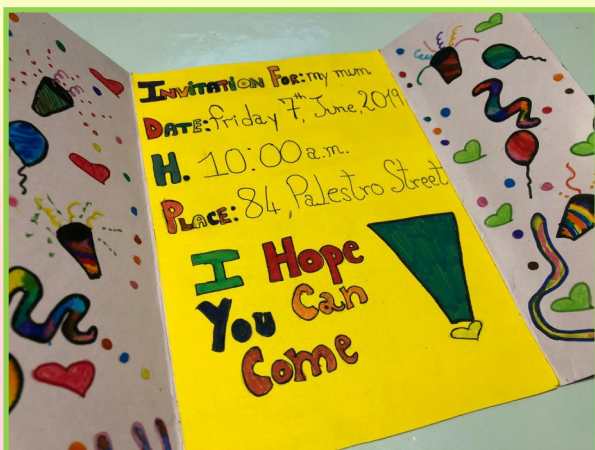 INVITATION FOR: my mum
DATE: friday 7th, June, 2019
H. 10:00 a.m.
PLACE: 84, Palestro Street
I Hope
You Can
Come